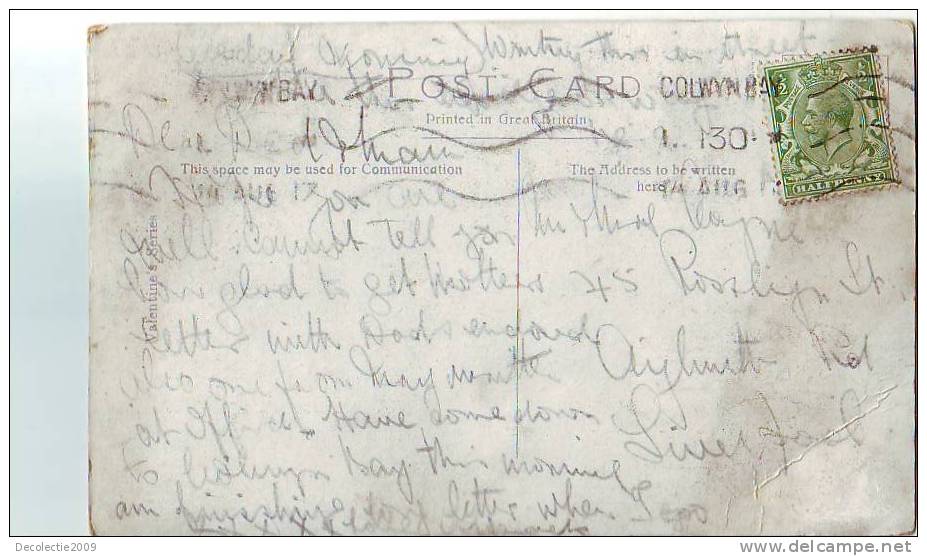 Morning Writing this in street
POST CARD
COLWYN BAY
Printed in Great Britain
Dear Dad & Mam
1. 130
This space may be used for Communication
The Address to be written here
14 AUG 17
14 AUG
HALFPENNY
Valentine's Series
Hope you are
well cannot tell you
how glad to get Mothers
letter with Dads enclosed
also one from May
at Office Have come down
to Colwyn Bay this morning
am finishing letter when I go
Payne
45 Rosslyn St.
Aigburth Rd
Liverpool
Decolectie2009
www.delcampe.net